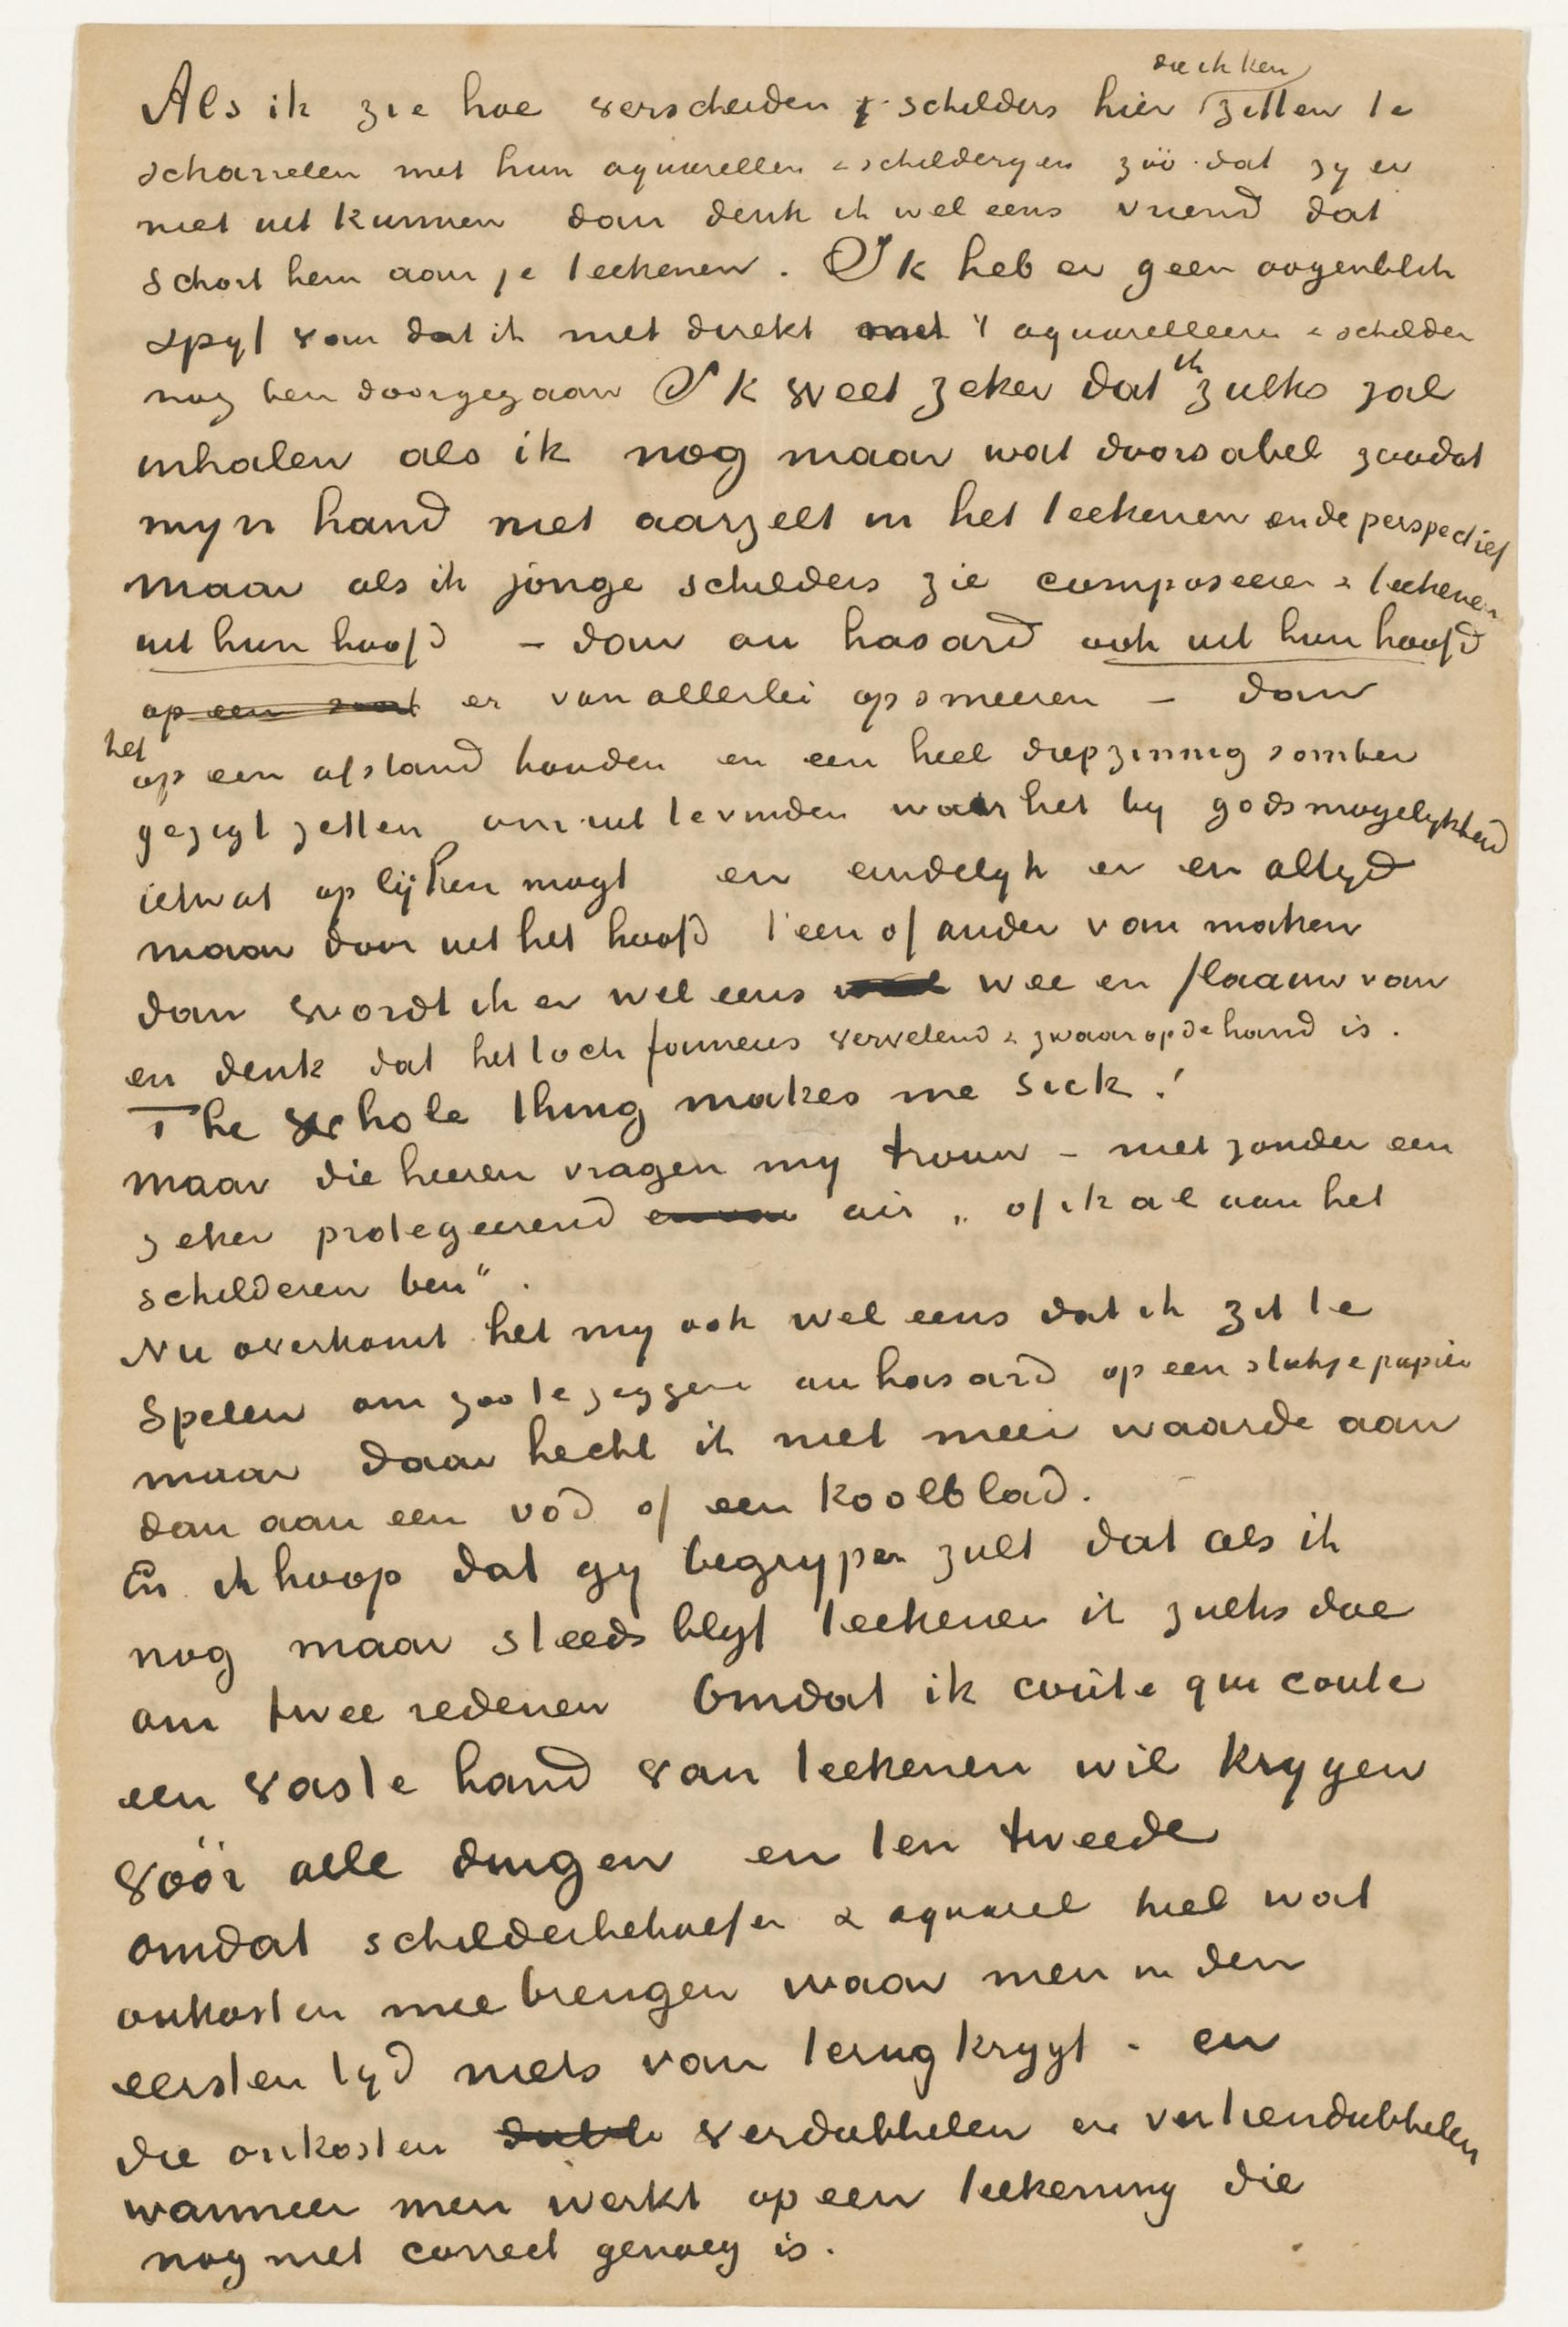 die ik ken
Als ik zie hoe verscheiden schilders hier zitten te
scharrelen met hun aquarellen & schilderyen zóó dat zy er
niet uit kunnen dan denk ik wel eens vriend dat
schort hem aan je teekenen. Ik heb er geen oogenblik
spyt van dat ik niet direkt met 't aquarelleeren & schilderen
nog ben doorgegaan Ik weet zeker dat ik zulks zal
inhalen als ik nog maar wat doorsabel zoodat
myn hand niet aarzelt in het teekenen en de perspectief
maar als ik jonge schilders zie composeeren & teekenen
uit hun hoofd – dan au hasard ook uit hun hoofd
op een soort er van allerlei op smeeren – dan
het
op een afstand houden en een heel diepzinnig somber
gezigt zetten om uit te vinden waar het by godsmogelykheid
ietwat op lijken mogt en eindelyk er en altyd
maar door uit het hoofd 't een of ander van maken
dan wordt ik er wel eens wee en flaauw van
en denk dat het toch fameus vervelend & zwaar op de hand is.
The whole thing makes me sick!
maar die heeren vragen my trouw – niet zonder een
zeker protegeerend air „of ik al aan het
schilderen ben“.
Nu overkomt het my ook wel eens dat ik zit te
spelen om zoo te zeggen au hasard op een stukje papier
maar daar hecht ik niet meer waarde aan
dan aan een vod of een koolblad.
En ik hoop dat gy begrypen zult dat als ik
nog maar steeds blyf teekenen ik zulks doe
om twee redenen Omdat ik coûte que coute
een vaste hand van teekenen wil krygen
vóór alle dingen en ten tweede
omdat schilderbehoefen & aquarel heel wat
onkosten mee brengen waar men in den
eersten tyd niets van terug krygt – en
die onkosten dubble verdubbelen en vertiendubbelen
wanneer men werkt op een teekening die
nog niet correct genoeg is.